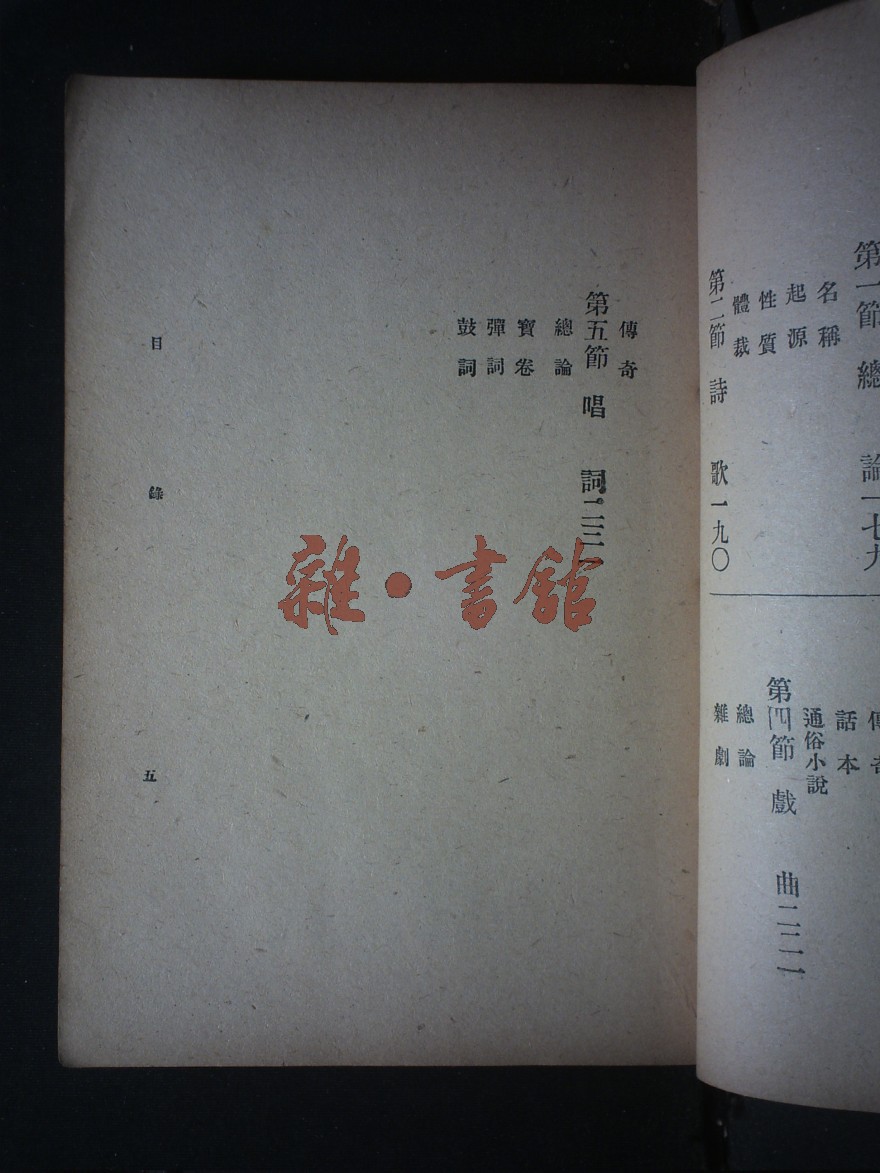 第一節 總 論一七九
名稱
起源
性質
體裁
第二節 詩 歌一九〇
傳奇
話本
通俗小說
第四節 戲 曲二二一
總論
雜劇
傳奇
第五節 唱 詞二三
總論
寶卷
彈詞
鼓詞
目 錄 五
雜·書館